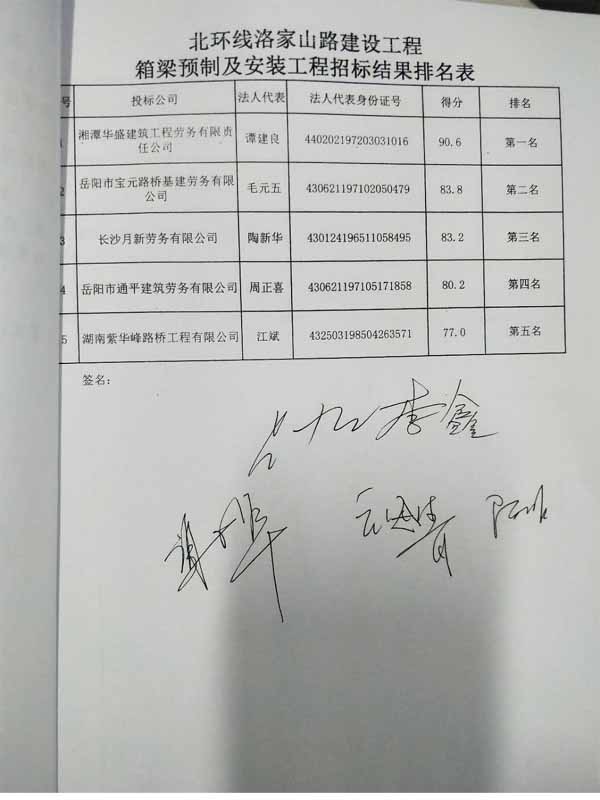 北环线洛家山路建设工程
箱梁预制及安装工程招标结果排名表
号 投标公司 法人代表 法人代表身份证号 得分 排名
1 湘潭华盛建筑工程劳务有限责
任公司 谭建良 440202197203031016 90.6 第一名
2 岳阳市宝元路桥基建劳务有限
公司 毛元五 430621197102050479 83.8 第二名
3 长沙月新劳务有限公司 陶新华 430124196511058495 83.2 第三名
4 岳阳市通平建筑劳务有限公司 周正喜 430621197105171858 80.2 第四名
5 湖南紫华峰路桥工程有限公司 江斌 432503198504263571 77.0 第五名
签名:
李鑫